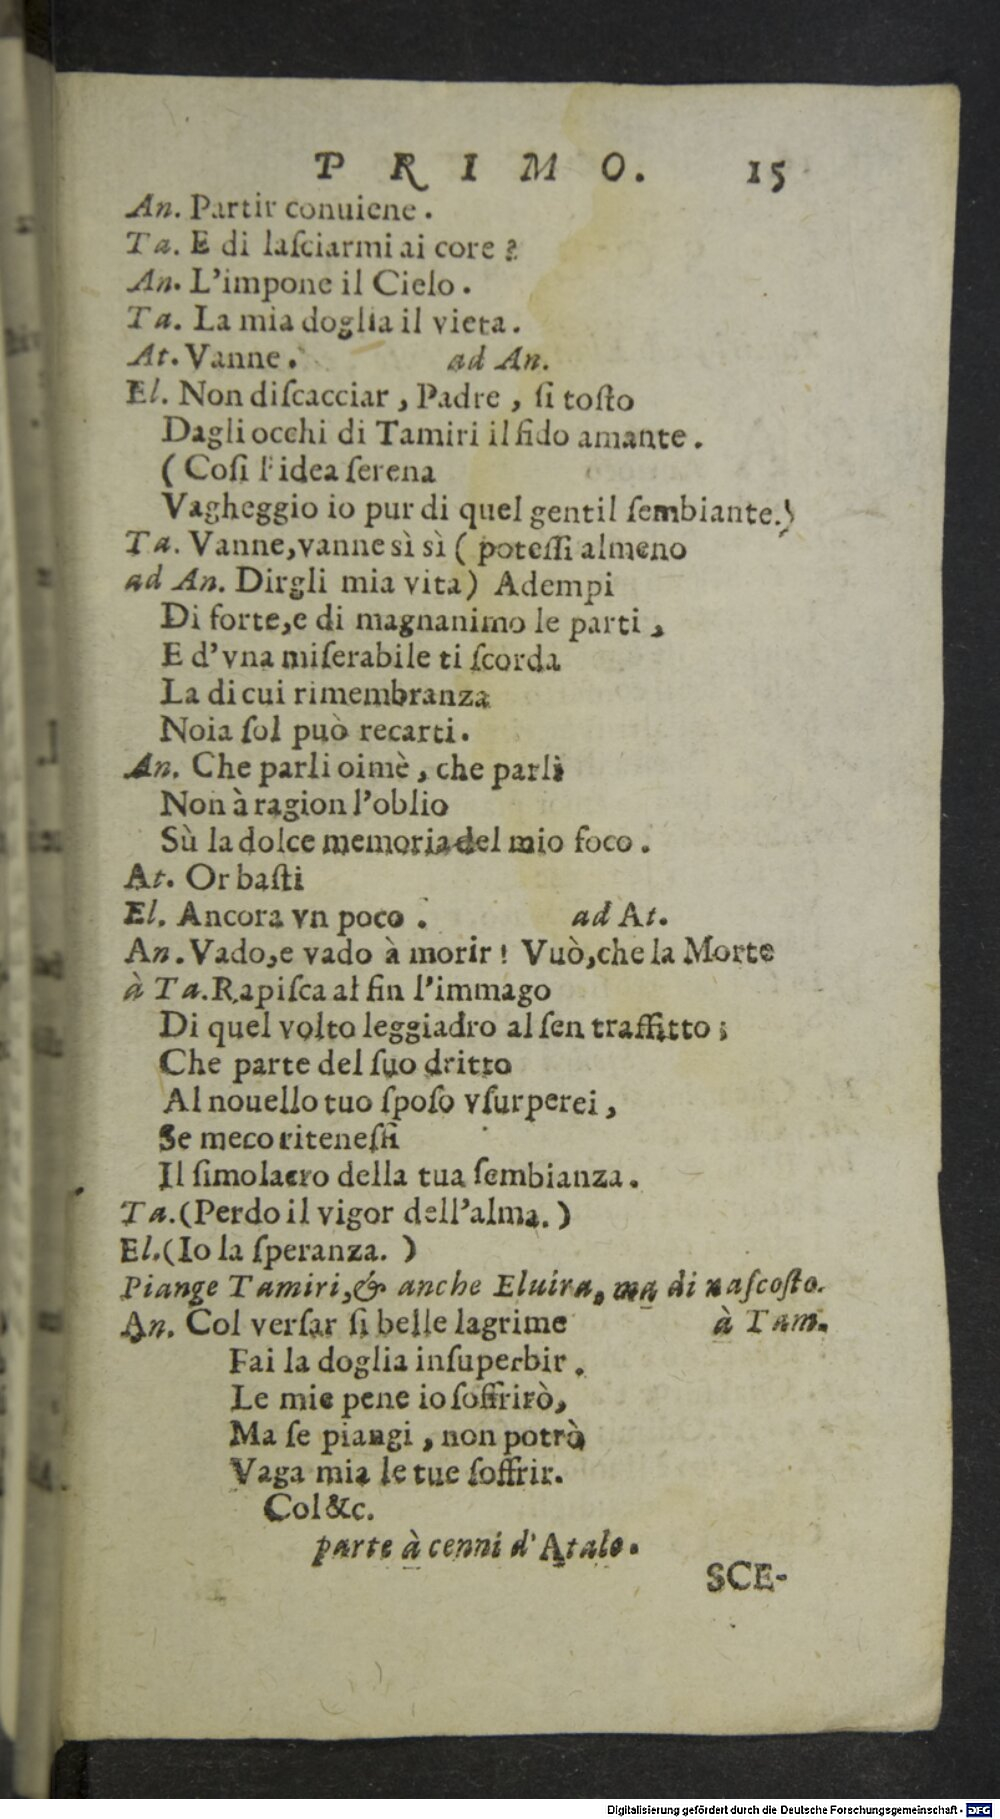 PRIMO. 15
An. Partir conuiene.
Ta. E di laſciarmi ai core?
An. L'impone il Cielo.
Ta. La mia doglia il vieta.
At. Vanne. ad An.
El. Non diſcacciar, Padre, ſi toſto
Dagli occhi di Tamiri il fido amante.
(Coſi l'idea ſerena
Vagheggio io pur di quel gentil ſembiante.)
Ta. Vanne, vanne sì sì (poteſſi almeno
ad An. Dirgli mia vita) Adempi
Di forte, e di magnanimo le parti,
E d'vna miſerabile ti ſcorda
La di cui rimembranza
Noia ſol può recarti.
An. Che parli oimè, che parli
Non à ragion l'oblio
Sù la dolce memoria del mio foco.
At. Or baſti
El. Ancora vn poco. ad At.
An. Vado, e vado à morir! Vuò, che la Morte
à Ta. Rapiſca al fin l'immago
Di quel volto leggiadro al ſen traffitto;
Che parte del ſuo dritto
Al nouello tuo ſpoſo vſurperei,
Se meco riteneſſi
Il ſimolacro della tua ſembianza.
Ta. (Perdo il vigor dell'alma.)
El. (Io la ſperanza.)
Piange Tamiri, & anche Eluira, ma di naſcoſto.
An. Col verſar ſi belle lagrime à Tam.
Fai la doglia inſuperbir.
Le mie pene io ſoffrirò,
Ma ſe piangi, non potrò
Vaga mia le tue ſoffrir.
Col &c.
parte à cenni d'Atalo.
SCE-
Digitalisierung gefördert durch die Deutsche Forschungsgemeinschaft - DFG